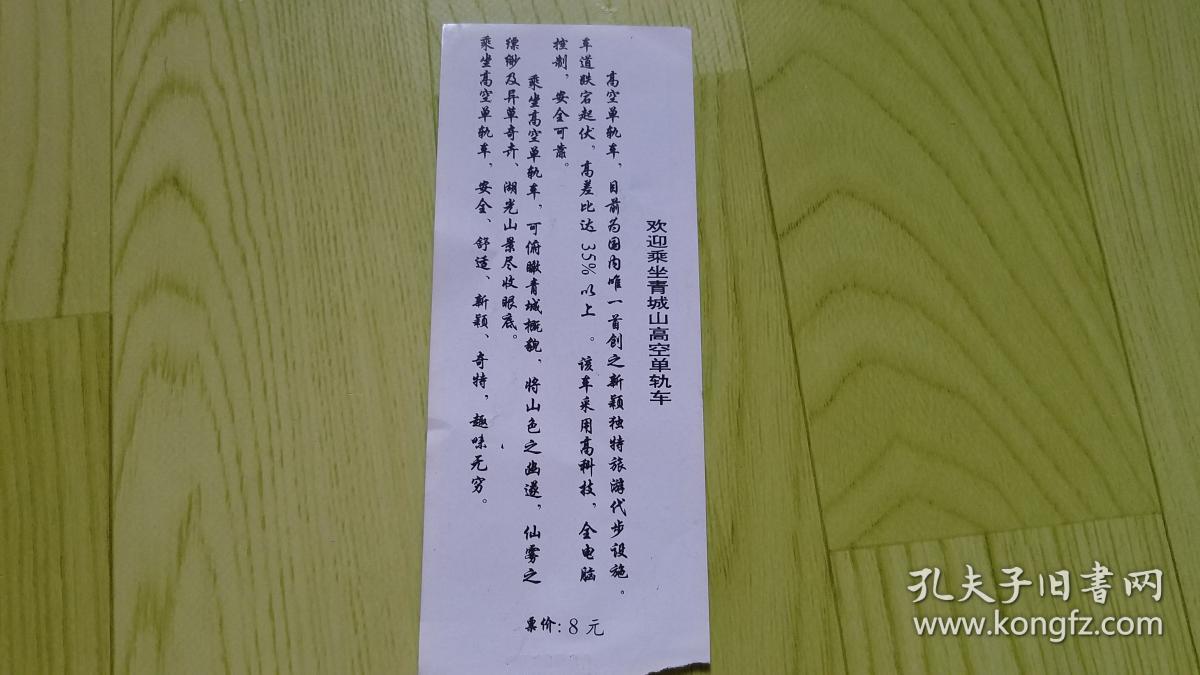 欢迎乘坐青城山高空单轨车
高空单轨车，目前为国内唯一首创之新颖独特旅游代步设施。
车道跌宕起伏，高差比达35%以上。该车采用高科技，全电脑
控制，安全可靠。
乘坐高空单轨车，可俯瞰青城概貌、将山色之幽邃，仙雾之
缥缈及异草奇卉、湖光山景尽收眼底。
乘坐高空单轨车，安全、舒适、新颖、奇特，趣味无穷。
票价：8元
孔夫子旧书网
www.kongfz.com